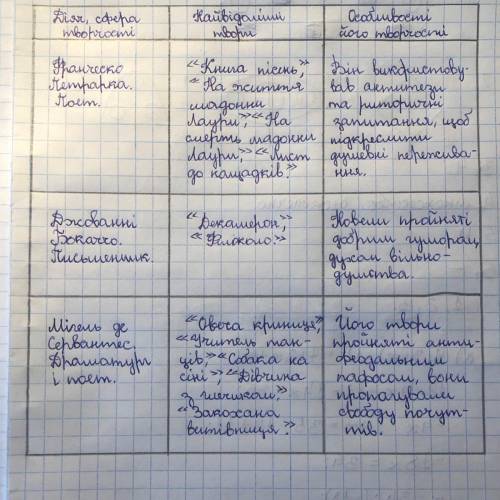 Діяч, сфера
творчості
Найвідоміші
твори
Особливості
його творчості
Франческо
Петрарка.
Поет.
"Книга пісень,"
"На життя
мадонни
Лаури," "На
смерть мадонни
Лаури," "Лист
до нащадків."
Він використову-
вав антитези
та риторичні
запитання, щоб
підкреслити
душевні пережива-
ння.
Джованні
Бокаччо.
Письменник.
"Декамерон,"
"Філоколо."
Новели пройняті
добрим гумором,
духом вільно-
думства.
Мігель де
Сервантес.
Драматург
і поет.
"Овеча криниця,"
"Учитель тан-
ців," "Собака на
сіні", "Дівчина
з глечиком,"
"Закохана
витівниця."
Його твори
пройняті анти-
феодальним
пафосом, вони
пропагували
свободу почут-
тів.